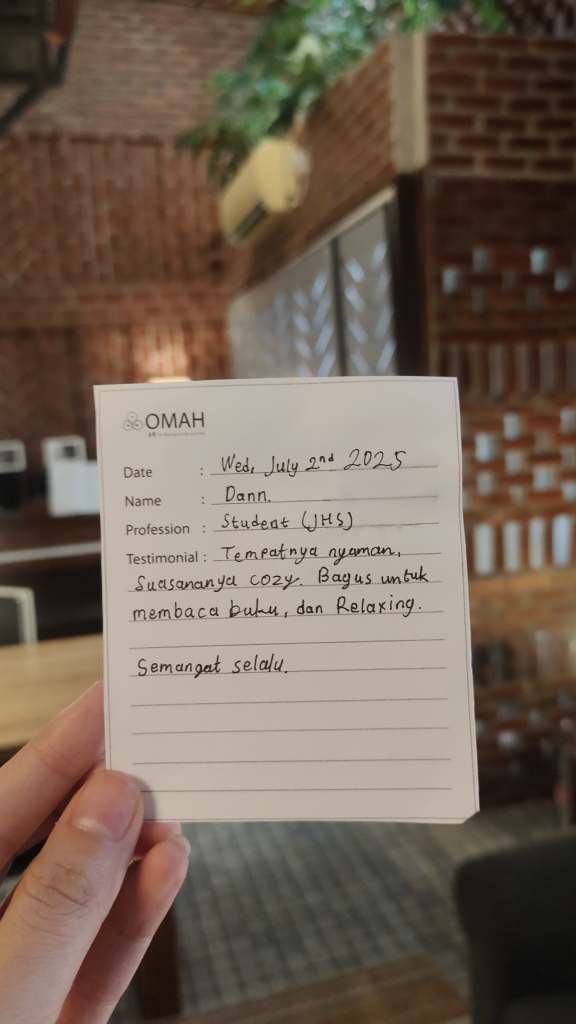 OMAH
Date : Wed, July 2nd 2025
Name : Dann.
Profession : Student (JHS)
Testimonial : Tempatnya nyaman,
Suasananya cozy. Bagus untuk
membaca buku, dan Relaxing.
Semangat selalu.